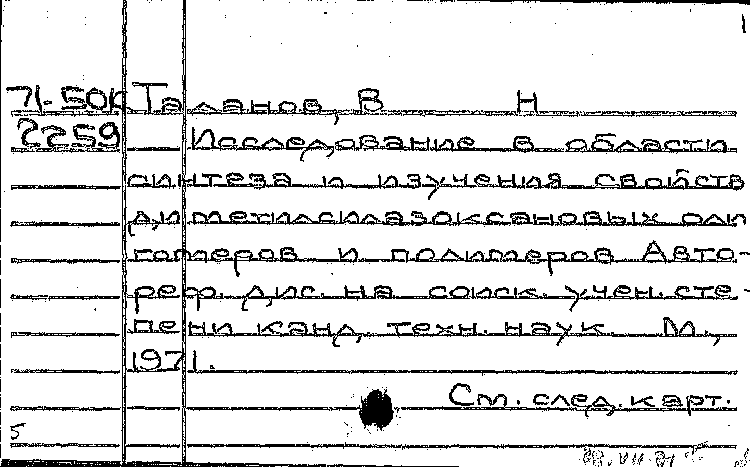 1
71-50к Таланов, В Н
2259 Исследование в области
синтеза и изучения свойств
диметилсилазоксановых оли
гомеров и полимеров Авто-
реф. дис. на соиск. учен. сте-
пени канд. техн. наук. М.,
1971.
См. след. карт.
5